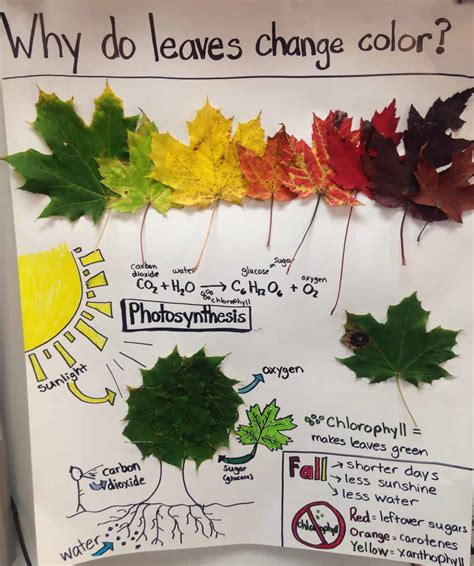 Why do leaves change color?
carbon dioxide water glucose sugar oxygen
CO2 + H2O → C6H12O6 + O2
chlorophyll
Photosynthesis
sunlight
oxygen
Chlorophyll =
makes leaves green
carbon
dioxide
sugar
(glucose)
water
Fall → shorter days
→ less sunshine
→ less water
chlorophyll
Red = leftover sugars
Orange = carotenes
Yellow = xanthophyll